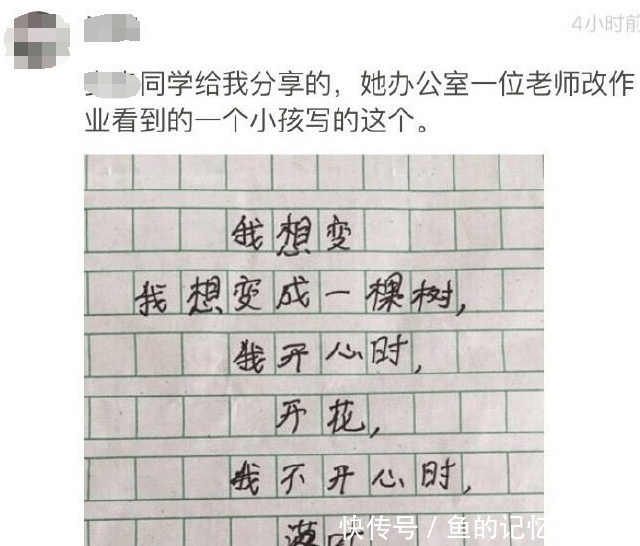 4小时前
同学给我分享的，她办公室一位老师改作
业看到的一个小孩写的这个。
我想变
我想变成一棵树，
我开心时，
开花，
我不开心时，
落
快传号/鱼的记忆